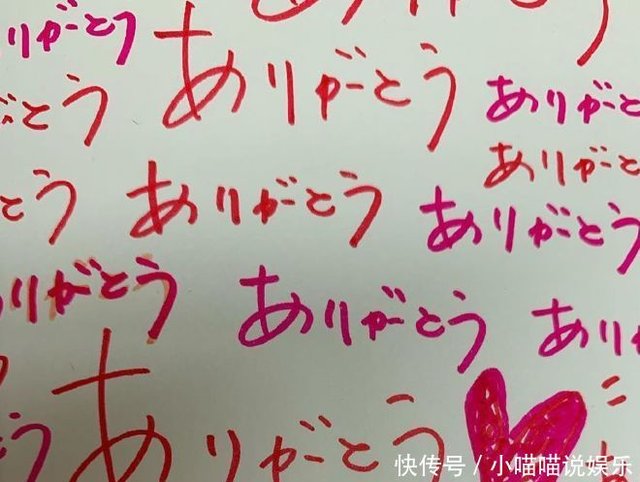 りがとう
ありがとう
ありがと
がとう
ありがと
とう
ありがとう
ありがとう
りがとう
ありがとう
ありが
う
ありがとう
快传号 / 小喵喵说娱乐